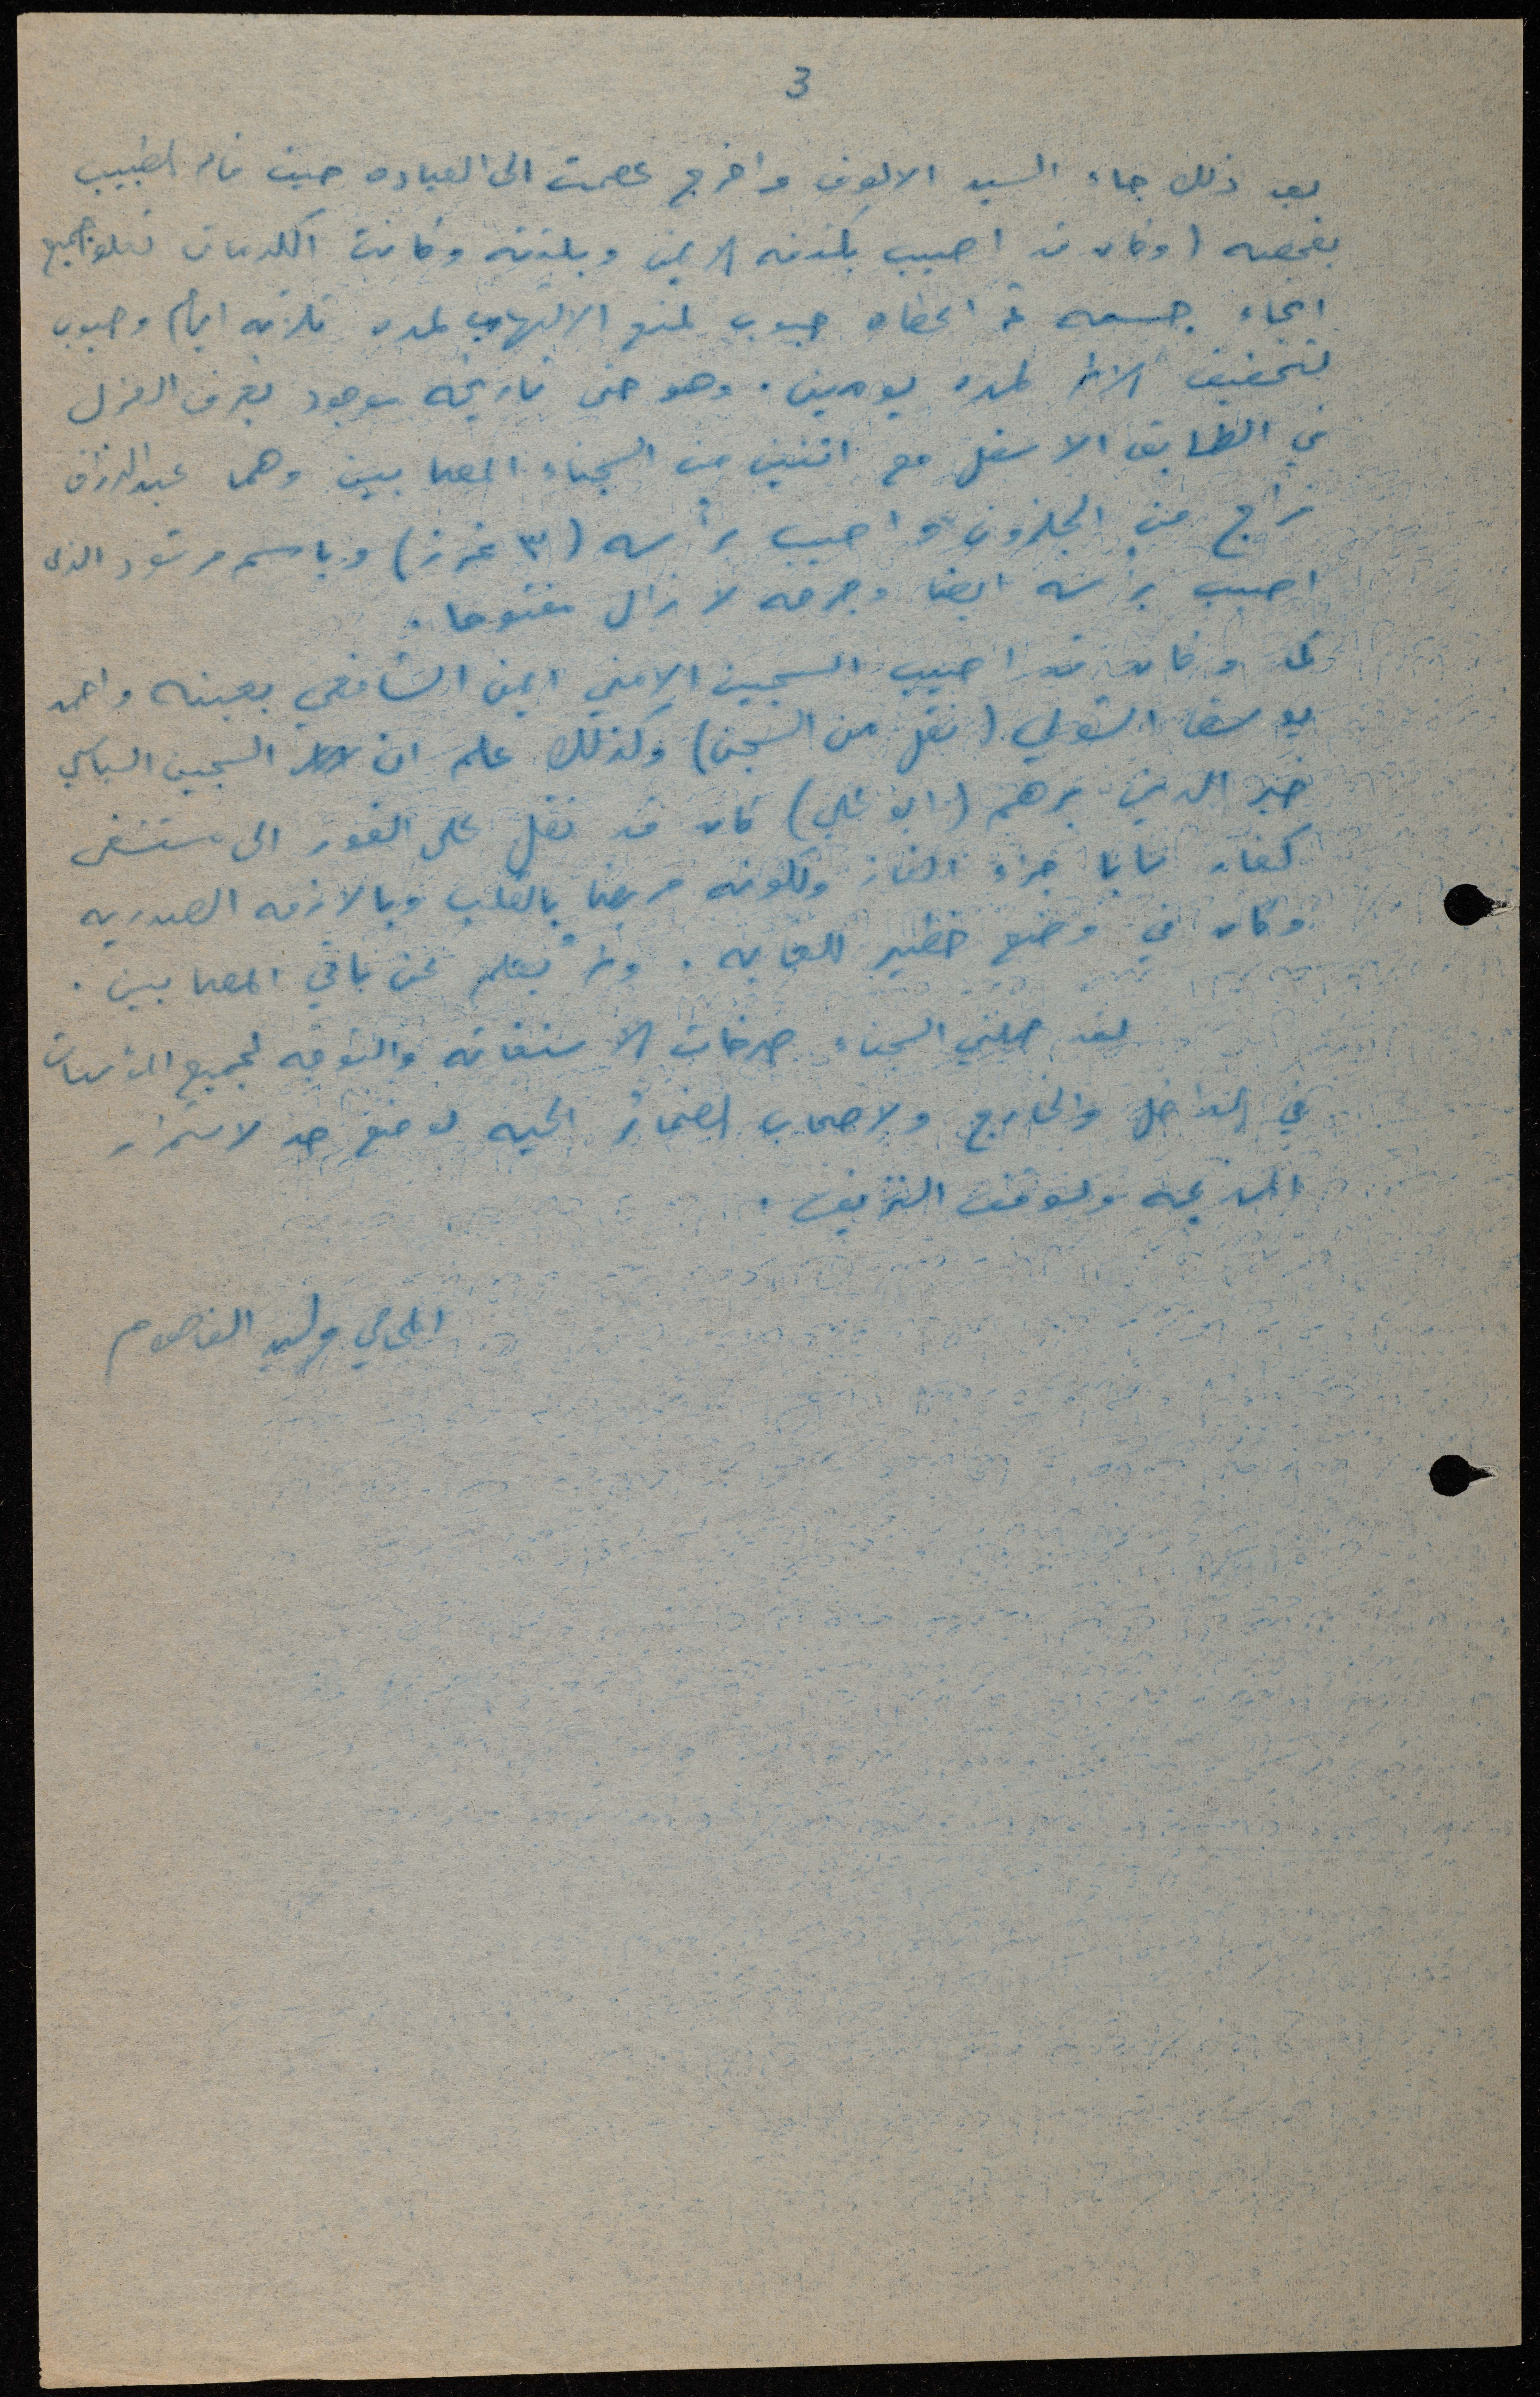 3
بعد ذلك جاء السيد الالوف واخرج عصمت الى العياده حيث قام الطبيب
بفحصه (وكان قد اصيب بكتفه الايمن وبلدته وكانت الكدمات تعلو جميع
انحاء جسمه ثم اعطاه حبوب لمنع الالتهاب لمده ثلاثه ايام وحبوب
لتخفيف الالم لمده يومين. وهو حتى تاريخه موجود بغرف العزل
في الطابق الاسفل مع اثنين من السجناء المصابين وهما عبدالرزاق
فراج من الجلزون واصيب برأسه (٣ غرز) وباسم مرشود الذى
اصيب برأسه ايضا وجرحه لا زال مفتوحا.
كما وكان قد اصيب السجين الامني ايمن الشافعي بعينه واحمد
يوسف الشولي (نقل من السجن) وكذلك علم ان السجين السياسي
خير الدين برهم (ابو علي) كان قد نقل على الفور الى مستشفى
كفار سابا جراء الغاز ولكونه مريضا بالقلب وبالازمه الصدريه
وكان في وضع خطير للغايه. ولم يعلم عن باقي المصابين.
لقد حملني السجناء صرخات الاستغاثه والتوجه لجميع المؤسسات
في الداخل والخارج ولاصحاب الضمائر الحيه لوضع حد لاستمرار
المذبحه ولوقف النزيف.
المحامي وليد الفاهوم